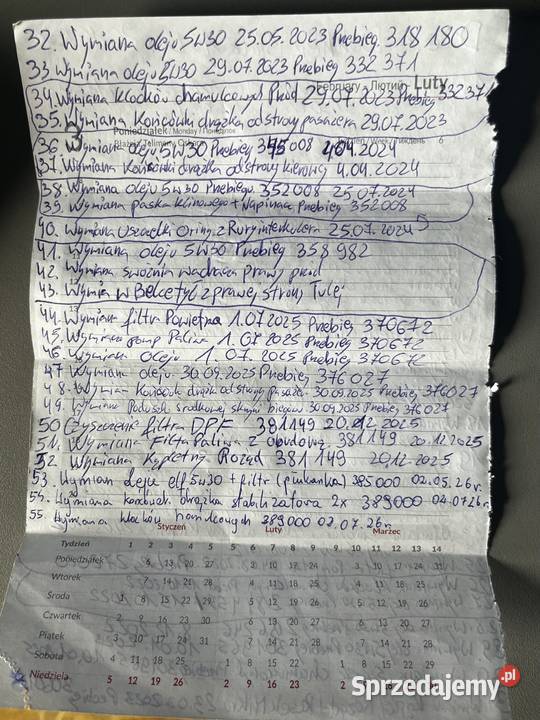 32. Wymiana oleju 5W30 25.05.2023 Przebieg 318 180
33. Wymiana oleju 5W30 29.07.2023 Przebieg 332 371
February / Лютий Luty
34. Wymiana klocków hamulcowych Przód 29.07.2023 Przebieg 332 371
35. Wymiana Końcówki drążka od strony pasażera 29.07.2023
Poniedziałek / Monday / Понеділок
36 Wymiana oleju 5W30 Przebieg 345 008 4.04.2024
37. Wymiana Końcówki drążka od strony kierowcy 4.04.2024
38. Wymiana oleju 5W30 Przebieg 352008 25.07.2024
39. Wymiana paska klinowego + Napinacz Przebieg 352008
40. Wymiana Uszczelki Oring z Rury interkulera 25.07.2024
41. Wymiana oleju 5W30 Przebieg 358 982
42. Wymiana sworznia wahacza prawy przód
43. Wymia w Belce tył z prawej strony Tulej
44. Wymiana filtra Powietrza 1.07.2025 Przebieg 370672
45. Wymiana pomp Paliwa 1.07.2025 Przebieg 370672
46. Wymiana oleju 1.07.2025 Przebieg 370672
47 Wymiana oleju 30.09.2025 Przebieg 376027
48. Wymian Końcówki drążk od strony pasażer 30.09.2025 Przebieg 376027
49. Wymiana Poduszki środkowej skrzyni biegów 30.09.2025 Przebieg 376027
50 Czyszczenie filtra DPF 381149 20.12.2025
51. Wymiana Filtra Paliwa z obudową 381149 20.12.2025
52. Wymiana Kąpletny Roząd 381149 20.12.2025
53. Wymian oleju elf 5w30 + filtr 385000 02.05.26r.
54. Wymiana końcówek drążka stabilizatora 2x 389000 04.07.26r.
55. Wymiana klocków hamlcowych 389000 02.07.26r.
Styczeń Luty Marzec
Tydzień 1 2 3 4 5 5 6 7 8 9 9 10 11 12 13 14
Poniedziałek 6 13 20 27 3 10 17 24 3 10 17 24 31
Wtorek 7 14 21 28 4 11 18 25 4 11 18 25
Środa 1 8 15 22 29 5 12 19 26 5 12 19 26
Czwartek 2 9 16 23 30 6 13 20 27 6 13 20 27
Piątek 3 10 17 24 31 7 14 21 28 7 14 21 28
Sobota 4 11 18 25 1 8 15 22 1 8 15 22 29
Niedziela 5 12 19 26 2 9 16 23 2 9
Sprzedajemy.pl